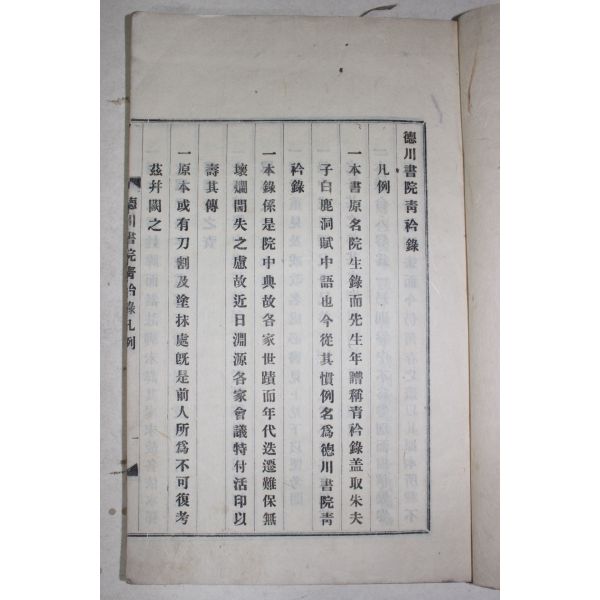 德川書院靑衿錄
凡例
一本書原名院生錄而先生年譜稱靑衿錄盖取朱夫
子白鹿洞賦中語也今從其慣例名爲德川書院靑
衿錄
一本錄係是院中典故各家世蹟而年代迭遷難保無
壞爛闕失之慮故近日淵源各家會議特付活印以
壽其傳
一原本或有刀割及塗抹處旣是前人所爲不可復考
茲幷闕之
德川書院靑衿錄凡例